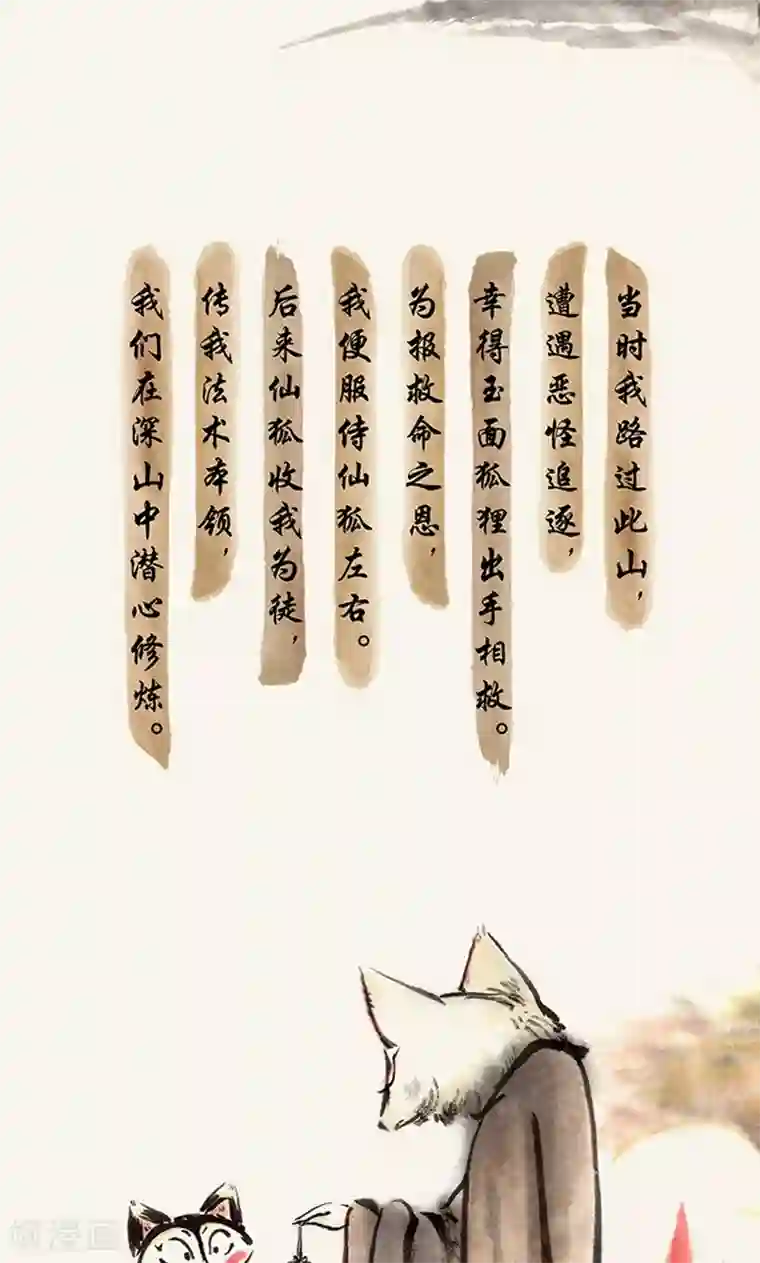 当时我路过此山，
遭遇恶怪追逐，
幸得玉面狐狸出手相救。
为报救命之恩，
我便服侍仙狐左右。
后来仙狐收我为徒，
传我法术本领，
我们在深山中潜心修炼。